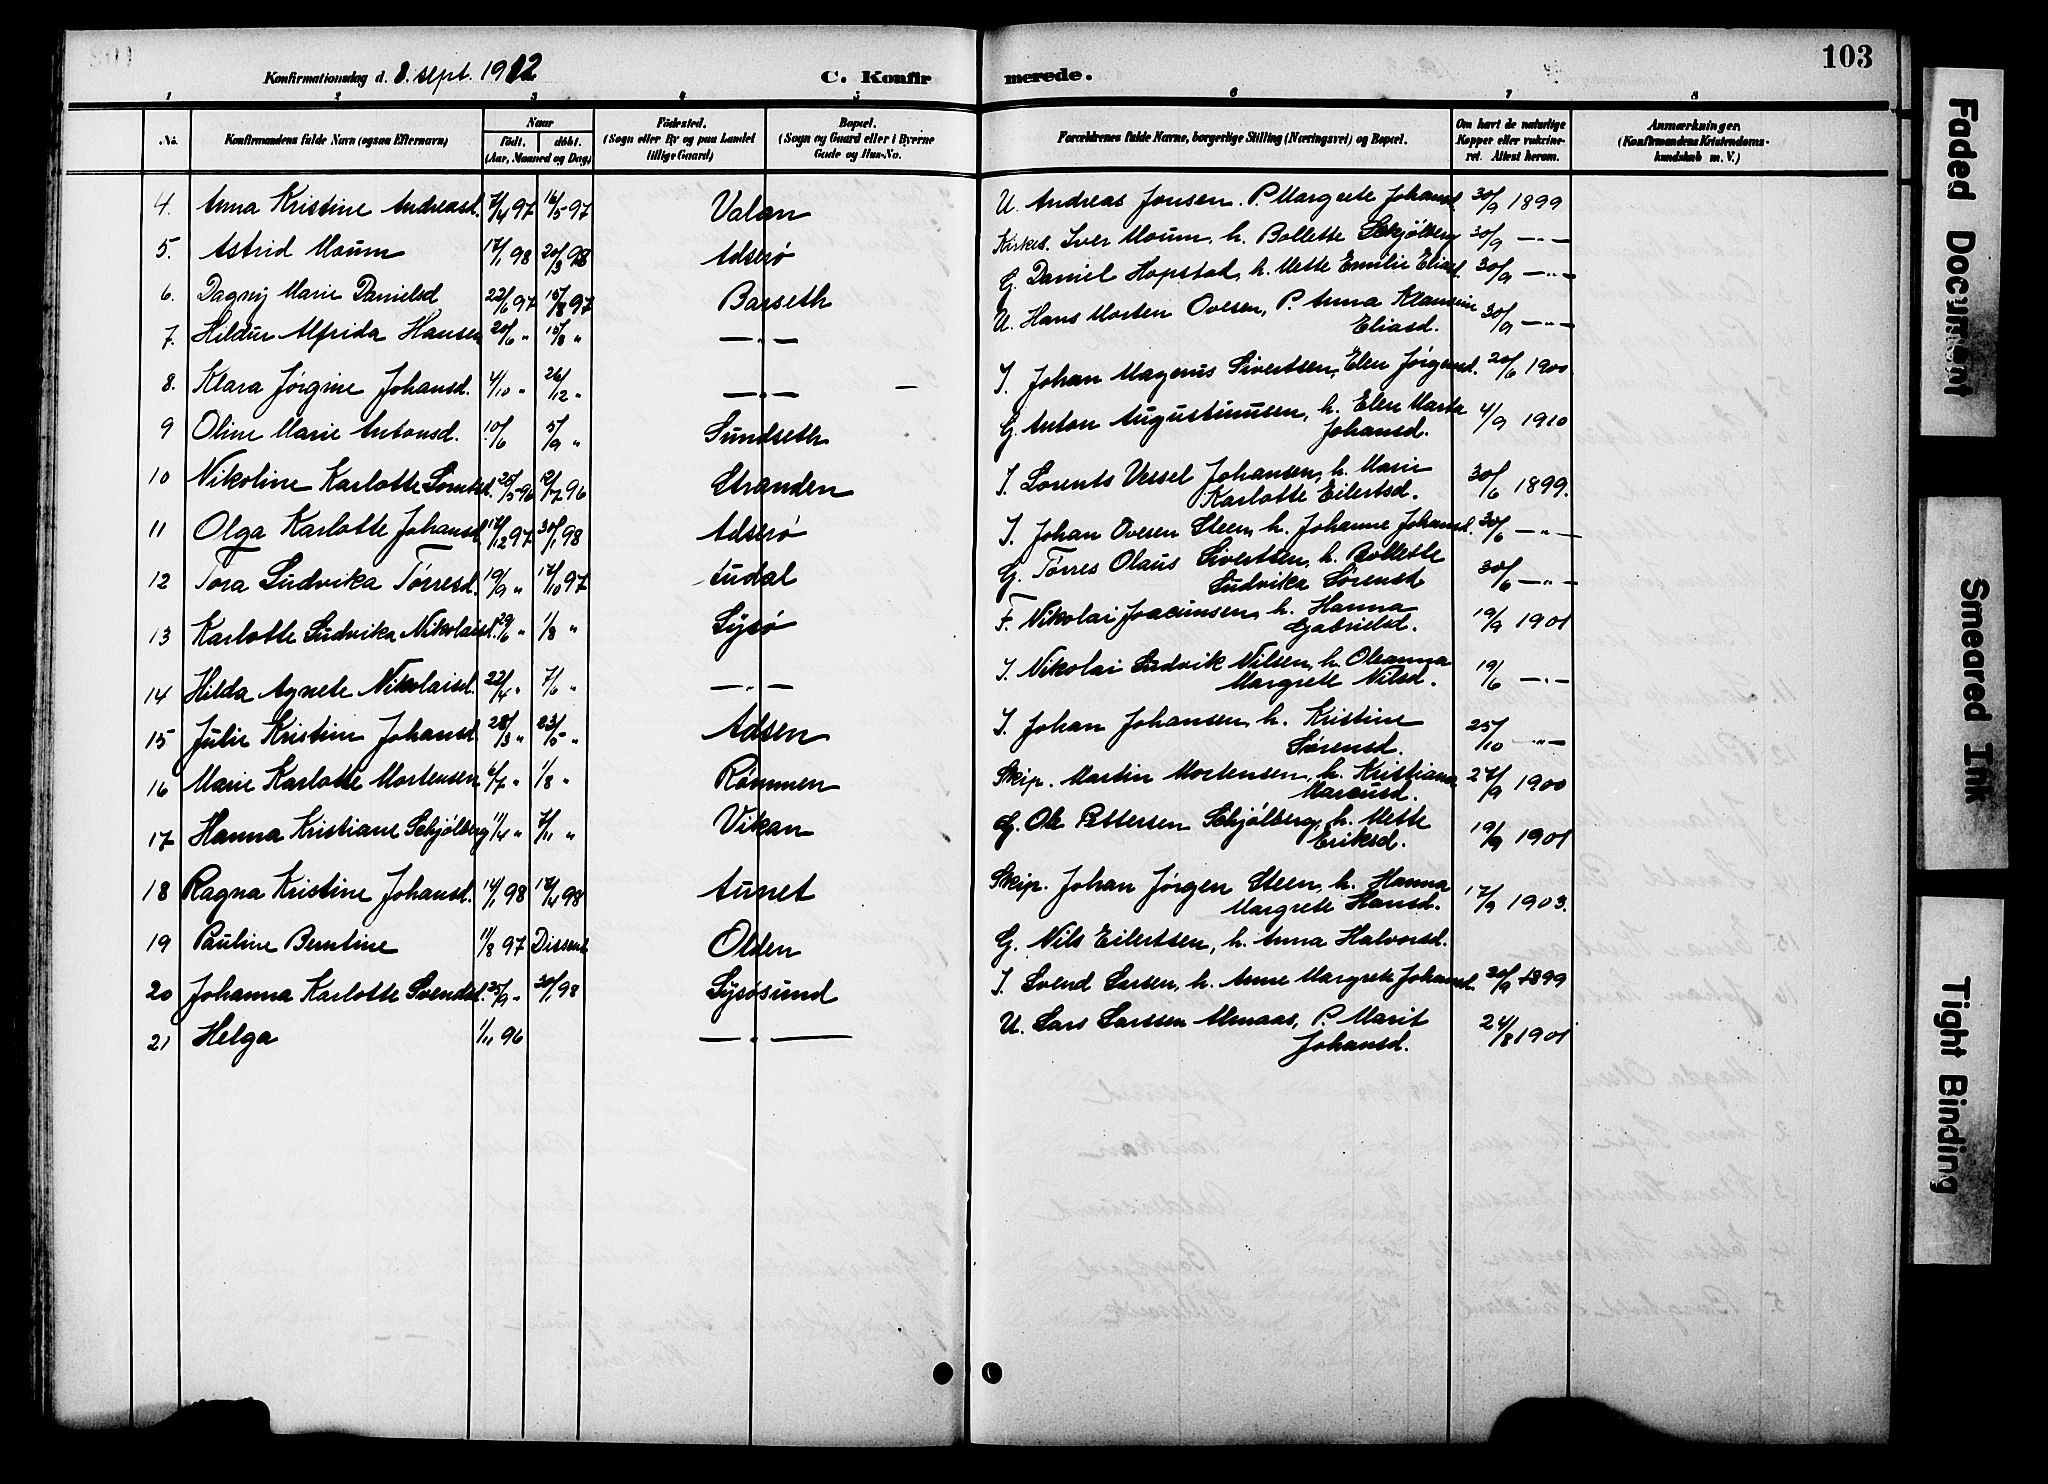 103
Konfirmationsdag d. 8. sept. 1912 C. Konfir merede.
1 2 3 4 5 6 7 8
No. Konfirmandens fulde Navn (ogsaa Efternavn) Naar født. døbt. (Aar, Maaned og Dag) Fødested. (Sogn eller By og paa Landet tillige Gaard) Bopæl. (Sogn og Gaard eller i Byerne Gade og Hus-No. Forældrenes fulde Navne, borgerlige Stilling (Næringsvei) og Bopæl. Om havt de naturlige Kopper eller vaksineret. Attest herom. Anmærkninger. (Konfirmandens Kristendomskundskab m. V.)
4. Anna Kristine Andreasd. 7/4 97 16/5 97 Valan U. Andreas Jonsen. P. Margrete Johansd. 30/9 1899
5. Astrid Moum 17/1 98 20/3 98 Adserø Kirkes. Iver Moum, h. Bollette Schjølberg 30/9 — " —
6. Dagny Marie Danielsd 22/6 97 15/8 97 Barseth G. Daniel Hopstad, h. Mette Emilie Eliasd. 30/9 — " —
7. Hildur Alfrida Hansen 20/6 " 15/8 " — " — U. Hans Morten Ovesen, P. Anna Klausine
Eliasd. 30/9 — " —
8. Klara Jørgine Johansd. 4/10 " 26/12 " — " — — I. Johan Magnus Sivertsen, Elen Jørgensd. 20/6 1900
9 Oline Marie Antonsd. 10/6 5/9 " Sundseth G. Anton Augustinusen, h. Elen Marta
Johansd. 4/9 1910
10 Nikoline Karlotte 25/5 96 12/7 96 Stranden I. Lorents Vessel Johansen, h. Marie
Karlotte Eilertsd. 30/6 1899.
11 Olga Karlotte Johansd 17/12 97 30/1 98 Adserø I. Johan Ovesen Steen, h. Johanne Johansd. 30/6 — " —
12 Tora Ludvika Tørresd. 19/9 " 17/10 97 Audal G. Tørres Olaus Sivertsen, h. Bollette
Ludvika Sørensd 30/6 — " —
13 Karlotte Ludvika Nikolaisd. 29/6 " 1/8 " Lysø F. Nikolai Joacimsen, h. Hanna
Gabrielsd. 19/9 1901
14 Hilda Agnete Nikolaisd. 22/4 " 7/6 " — " — I. Nikolai Ludvik Nilsen, h. Oleanna
Margrete Nilsd. 19/6 — " —
15 Julie Kristine Johansd 28/3 " 23/5 " Adsen I. Johan Johansen, h. Kristine
Sørensd. 25/10 — " —
16 Marie Karlotte Mortensen 6/7 " 1/8 " Rømmen Skip. Martin Mortensen, h. Kristiana
Marcusd. 27/9 1900
17 Hanna Kristiane Schjølberg 11/4 " 7/11 " Vikan G. Ole Pettersen Schjølberg, h. Mette
Eriksd. 19/9 1901
18 Ragna Kristine Johansd. 14/1 98 17/4 98 Aunet Skip. Johan Jørgen Steen, h. Hanna
Margrete Hansd. 17/9 1903.
19 Pauline Berntine 11/8 97 Dissent Olden G. Nils Eilertsen, h. Anna Halvorsd.
20 Johanna Karlotte Svendsd. 25/9 " 30/1 98 Lysøsund I. Svend Larsen, h. Anne Margrete Johansd. 30/9 1899
21 Helga 1/11 96 — " — U. Lars Larssen Almaas, P. Marit
Johansd. 24/8 1901
Faded Document
Smeared Ink
Tight Binding